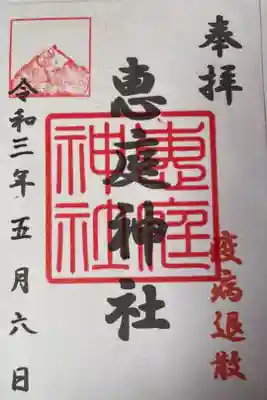 奉拝
疫病退散
恵庭神社
恵庭
神社
令和三年五月六日